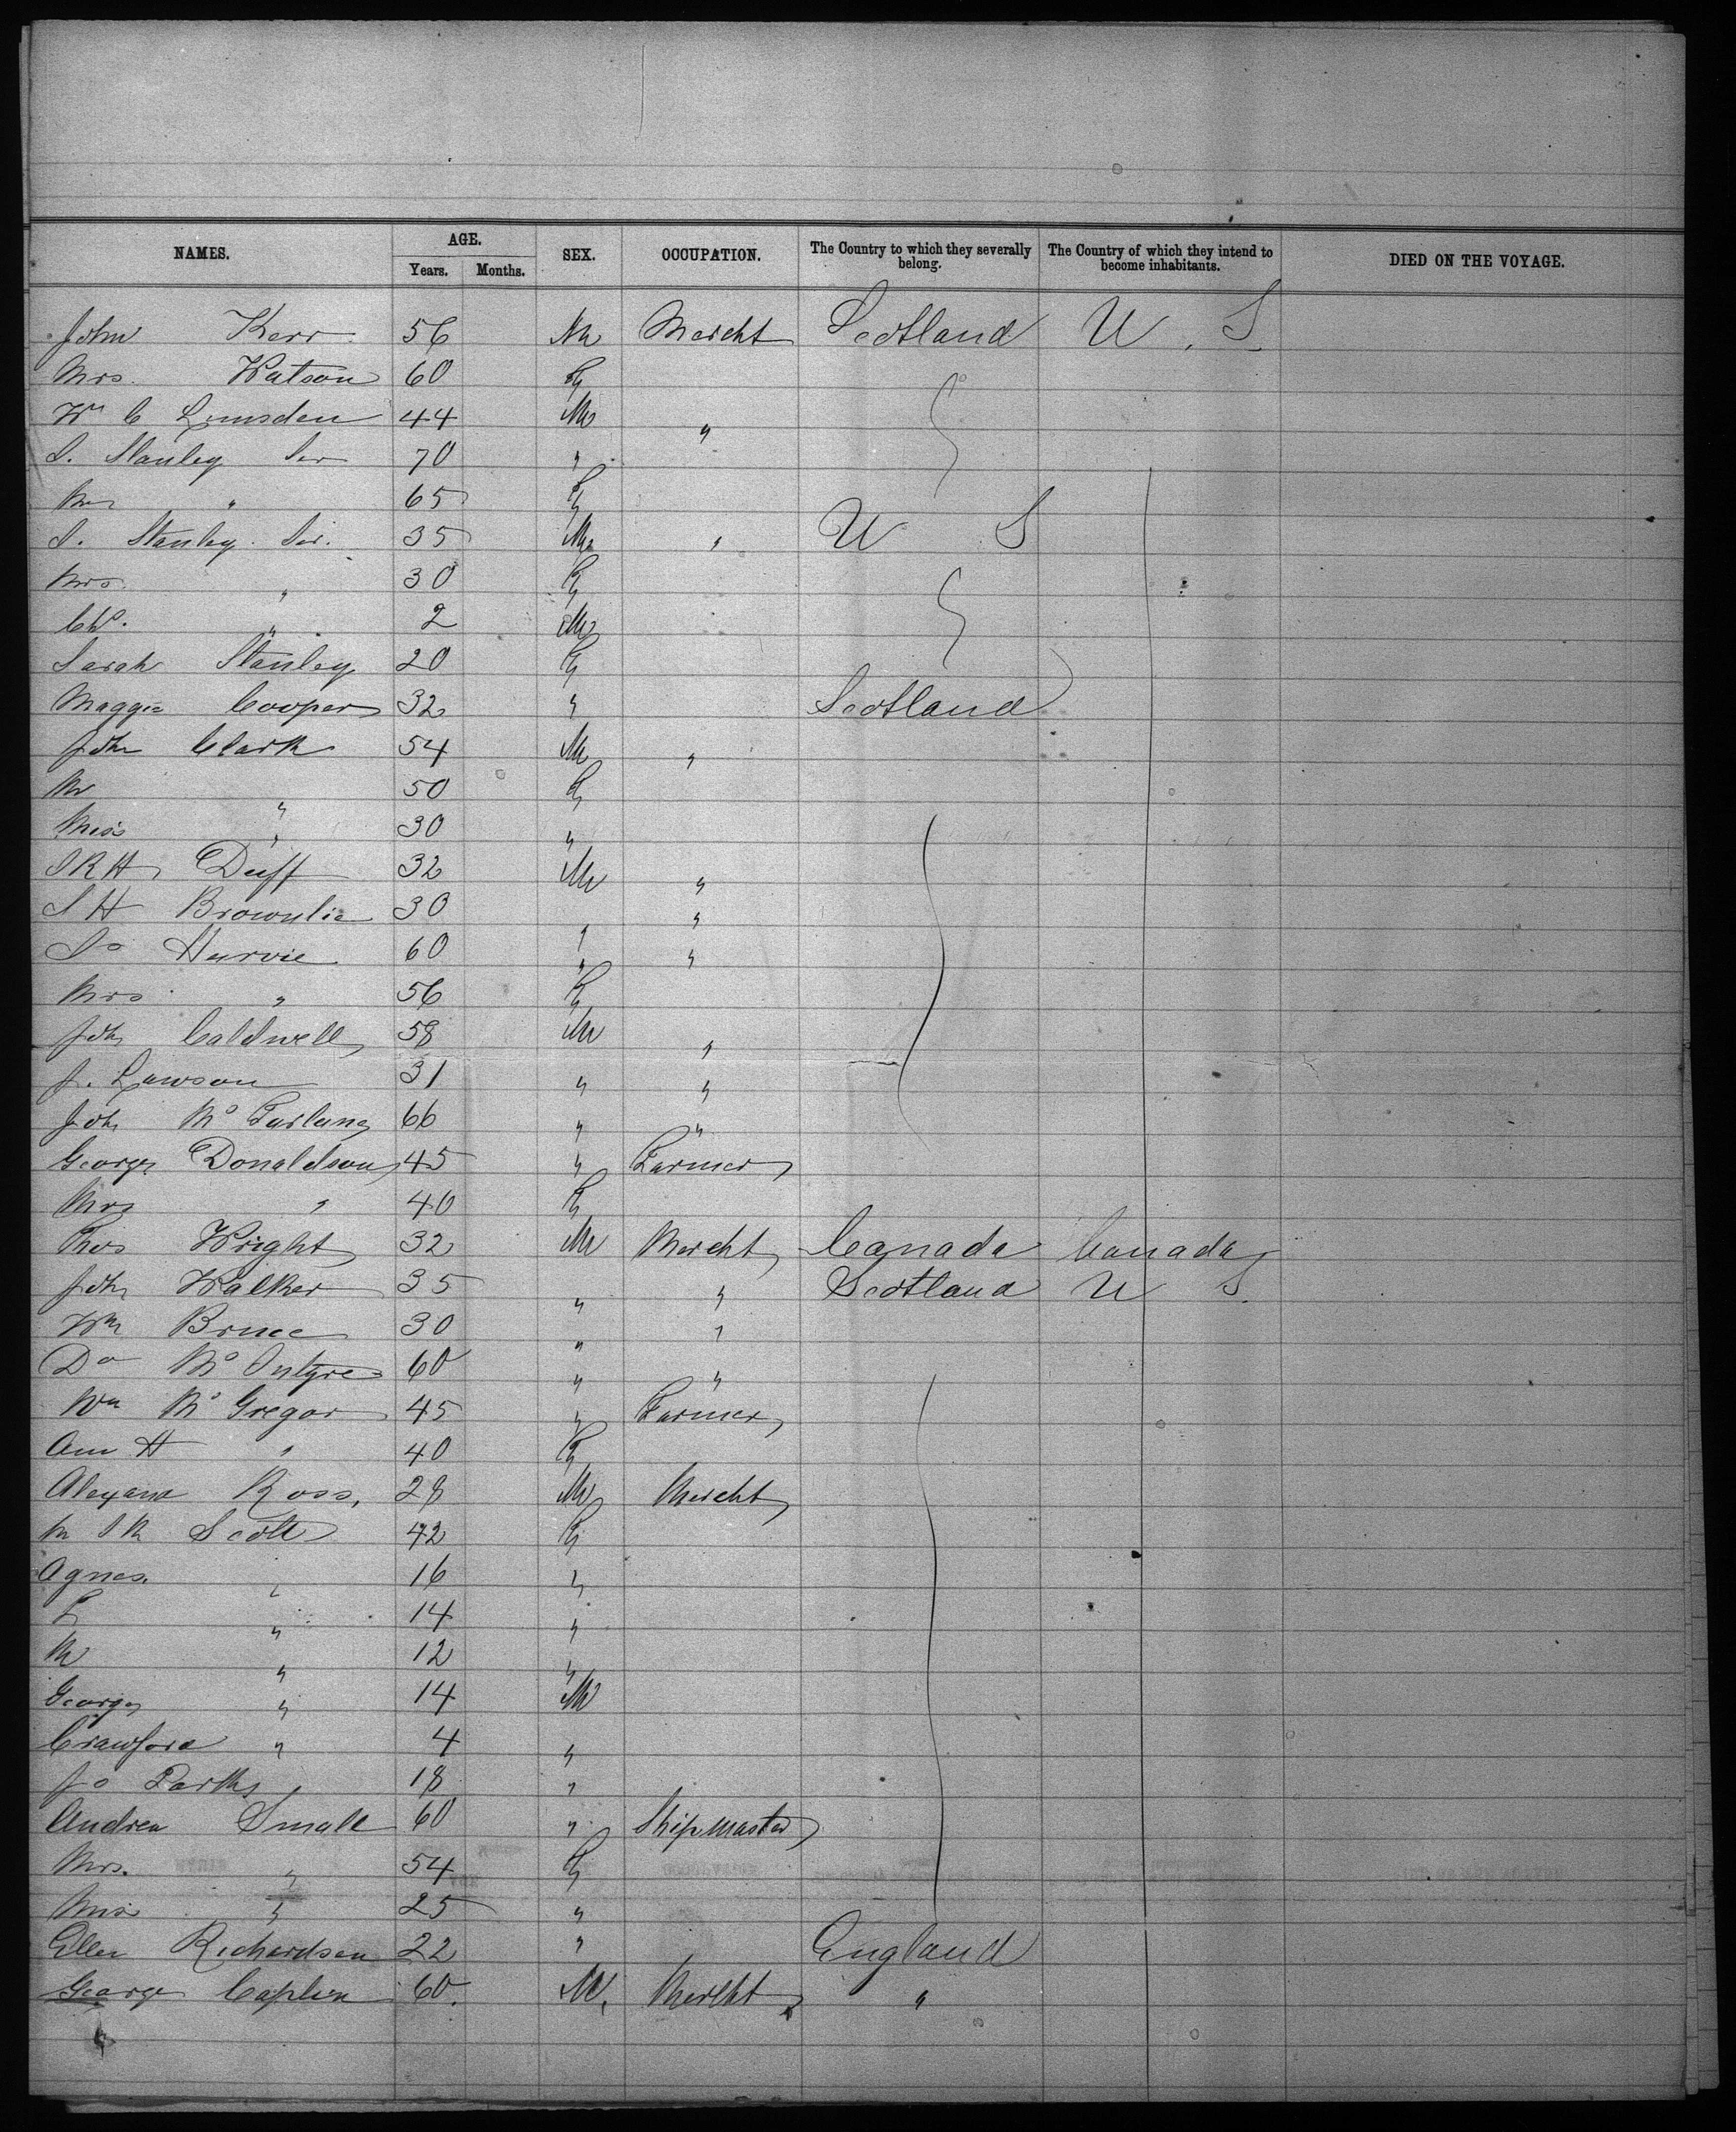 NAMES. AGE. SEX. OCCUPATION. The Country to which they severally belong. The Country of which they intend to become inhabitants. DIED ON THE VOYAGE.
Years. Months.
John Kerr 56 M Mercht Scotland U. S
Mrs. Watson 60 F
Wm C Lumsden 44 M "
S. Stanley Ser 70 "
Mrs " 65 F
S. Stanley 35 M " U S
Mrs. " 30 F
Chd. " 2 M
Sarah Stanley 20 F
Maggie Cooper 32 " Scotland
John Clark 54 M "
" 50 F
Miss " 30 "
Duff 32 M "
S H Brownlie 30 " "
Harvie 60 " "
Mrs " 56 F
John Caldwell 58 M "
J. Lawson 31 " "
John Mc Farlane 66 " "
George Donaldson 45 " Farmer
Mrs " 40 F
Thos Wright 32 M Mercht Canada Canada
John Walker 35 " " Scotland U S
Wm Bruce 30 " "
Do Mc Intyre 60 " "
Wm Mc Gregor 45 " Farmer
Ann H " 40 F
Ross. 28 M Mercht
Scott 42 F
Agnes. " 16 "
" 14 "
M " 12 "
George " 14 M
Crawford " 4 "
Jo Parks 18 "
Andrew Small 60 " Shipmaster
Mrs. " 54 F
Miss " 25 "
Ellen Richardson 22 " England
George Caplen 60. M. Mercht "